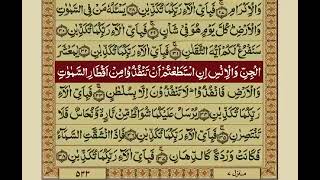 وَالْاِكْرَامِ ﴿۲۷﴾ فَبِاَىِّ اٰلَآءِ رَبِّكُمَا تُكَذِّبٰنِ ﴿۲۸﴾ يَسْئَلُهٗ مَنْ فِى السَّمٰوٰتِ
وَالْاَرْضِ كُلَّ يَوْمٍ هُوَ فِىْ شَاْنٍ ﴿۲۹﴾ فَبِاَىِّ اٰلَآءِ رَبِّكُمَا تُكَذِّبٰنِ ﴿۳۰﴾
سَنَفْرُغُ لَكُمْ اَيُّهَ الثَّقَلٰنِ ﴿۳۱﴾ فَبِاَىِّ اٰلَآءِ رَبِّكُمَا تُكَذِّبٰنِ ﴿۳۲﴾ يٰمَعْشَرَ
الْجِنِّ وَالْاِنْسِ اِنِ اسْتَطَعْتُمْ اَنْ تَنْفُذُوْا مِنْ اَقْطَارِ السَّمٰوٰتِ
وَالْاَرْضِ فَانْفُذُوْا ؕ لَا تَنْفُذُوْنَ اِلَّا بِسُلْطٰنٍ ﴿۳۳﴾ فَبِاَىِّ
اٰلَآءِ رَبِّكُمَا تُكَذِّبٰنِ ﴿۳۴﴾ يُرْسَلُ عَلَيْكُمَا شُوَاظٌ مِّنْ نَّارٍ وَّنُحَاسٌ فَلَا
تَنْتَصِرٰنِ ﴿۳۵﴾ فَبِاَىِّ اٰلَآءِ رَبِّكُمَا تُكَذِّبٰنِ ﴿۳۶﴾ فَاِذَا انْشَقَّتِ السَّمَآءُ
فَكَانَتْ وَرْدَةً كَالدِّهَانِ ﴿۳۷﴾ فَبِاَىِّ اٰلَآءِ رَبِّكُمَا تُكَذِّبٰنِ ﴿۳۸﴾
منزل ۷ ۵۳۳